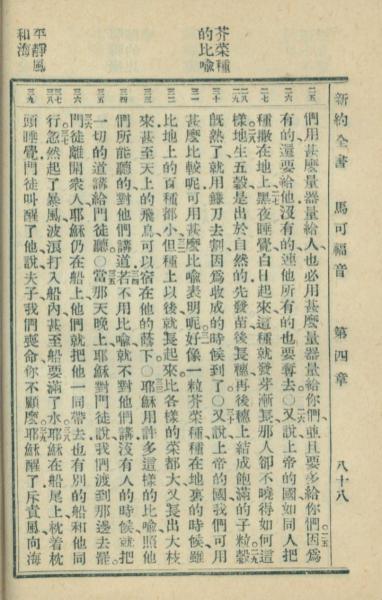 新約全書 馬可福音 第四章 八十八
芥菜種
的比喩
平靜風
和海
二五 們用甚麽量器量給人也必用甚麽量器量給你們並且要多給你們因爲
二六 有的還要給他沒有的連他所有的也要奪去○又說上帝的國如同人把
二七 種撒在地上黑夜睡覺白日起來這種就發芽漸長那人卻不曉得如何這
二八 二九 樣地生五穀是出於自然的先發苗後長穗再後穗上結成飽滿的子粒穀
三十 旣熟了就用鐮刀去割因爲收成的時候到了○又說上帝的國我們可用
三一 甚麽比較呢可用甚麽比喩表明呢好像一粒芥菜種種在地裏的時候雖
三二 比地上的百種都小但種上以後就長起來比各樣的菜都大又長出大枝
三三 來甚至天上的飛鳥可以宿在他的蔭下○耶穌用許多這樣的比喩照他
三四 們所能聽的對他們講道若不用比喩就不對他們講沒有人的時候就把
三五 一切的道講給門徒聽○當那天晚上耶穌對門徒說我們渡到那邊去罷
三六 門徒離開衆人耶穌仍在船上他們就把他一同帶去也有別的船和他同
三七 三八 行忽然起了暴風波浪打入船內甚至船要滿了水耶穌在船尾上枕着枕
三九 頭睡覺門徒叫醒了他說夫子我們喪命你不顧麽耶穌醒了斥責風向海